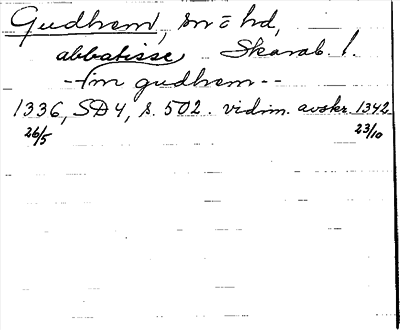 Gudhem, sn o hd,
abbatisse Skarab. l.
--im gudhem--
1336, SD4, s. 502. vidim. avskr. 1342
26/5 23/10